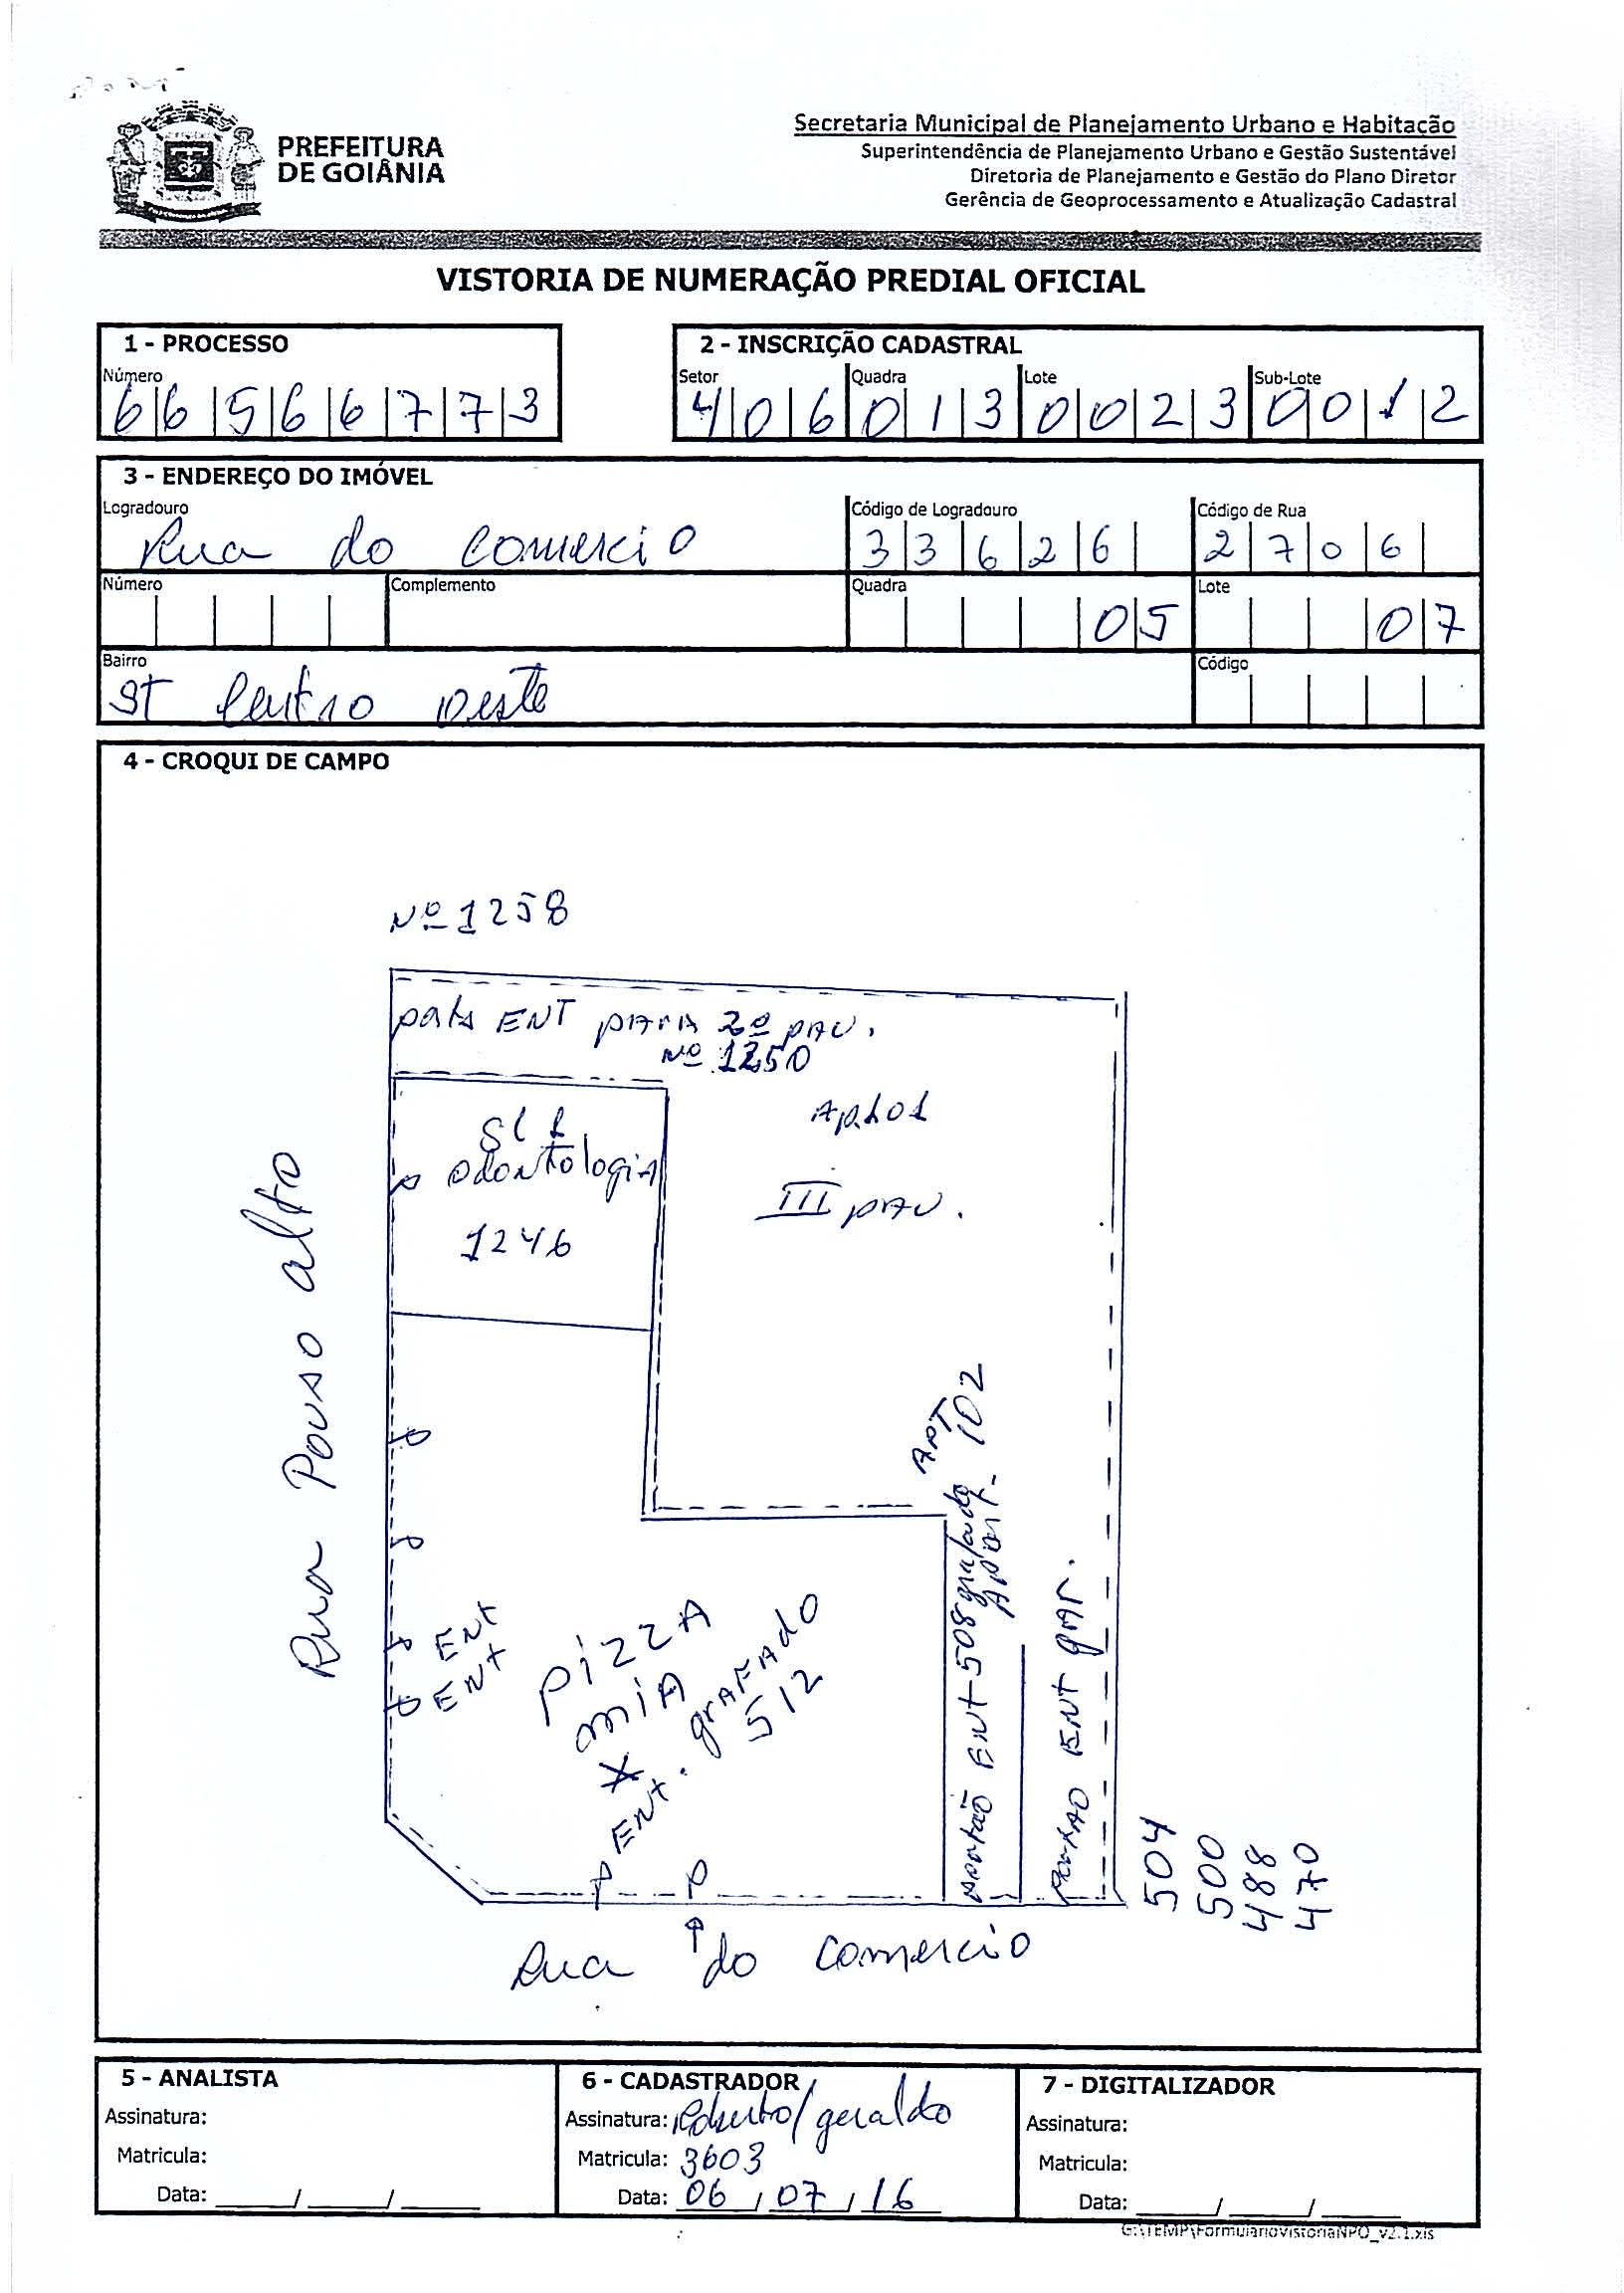 PREFEITURA
DE GOIÂNIA
Secretaria Municipal de Planejamento Urbano e Habitação
Superintendência de Planejamento Urbano e Gestão Sustentável
Diretoria de Planejamento e Gestão do Plano Diretor
Gerência de Geoprocessamento e Atualização Cadastral
VISTORIA DE NUMERAÇÃO PREDIAL OFICIAL
1 - PROCESSO
Número
66566773
2 - INSCRIÇÃO CADASTRAL
Setor Quadra Lote Sub-Lote
406 013 0023 0012
3 - ENDEREÇO DO IMÓVEL
Logradouro Código de Logradouro Código de Rua
Rua do comercio 33626 2706
Número Complemento Quadra Lote
05 07
Bairro Código
ST Centro oeste
4 - CROQUI DE CAMPO
Nº 1258
ENT para 2º pav.
Nº 1250
Ap.101
III pav.
SL 1
odontologia
1246
Rua Pouso alto
ENT
ENT
pizza
mia
X
ENT. grafado
512
APT 102
portão ENT 508 grafado
portão ENT gar.
504
500
488
470
Rua do comercio
5 - ANALISTA
Assinatura:
Matricula:
Data: ____/____/____
6 - CADASTRADOR
Assinatura: Roberto/geraldo
Matricula: 3603
Data: 06/07/16
7 - DIGITALIZADOR
Assinatura:
Matricula:
Data: ____/____/____
G:\TEMP\FormularioVistoriaNPO_v2.1.xls